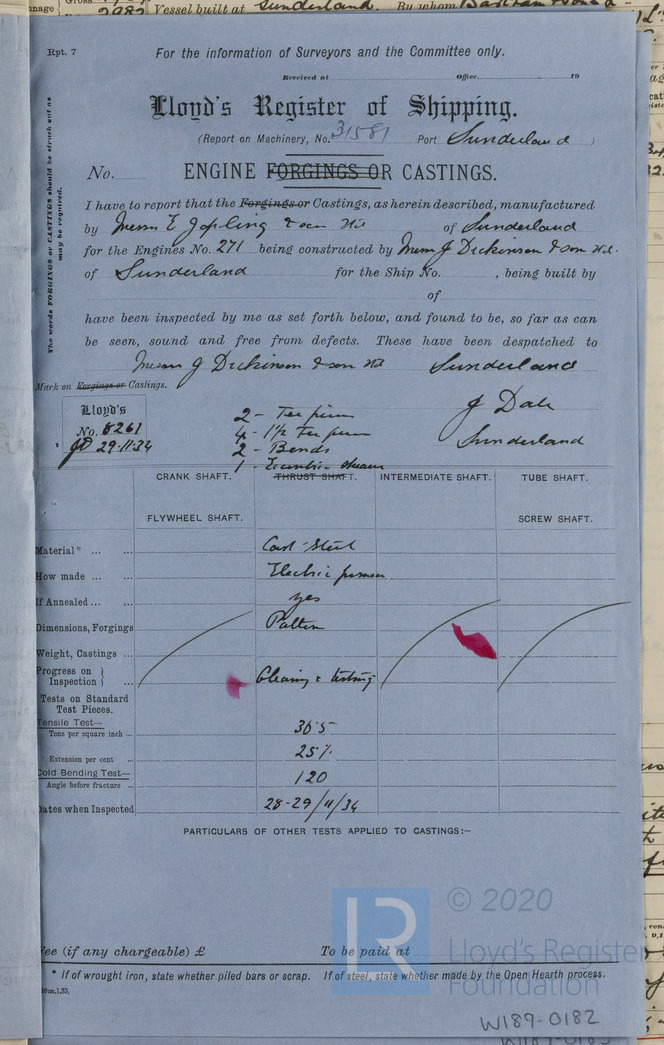 2982 Vessel built at Sunderland By whom
Rpt. 7
For the information of Surveyors and the Committee only.
Received at Office 19
Lloyd's Register of Shipping.
(Report on Machinery, No. 31581 Port Sunderland )
No. ENGINE FORGINGS OR CASTINGS.
The words FORGINGS or CASTINGS should be struck out as
may be required.
I have to report that the Forgings or Castings, as herein described, manufactured
by Messrs E Jopling & son Ltd of Sunderland
for the Engines No. 271 being constructed by Messrs J Dickinson & son Ltd.
of Sunderland for the Ship No. , being built by
of
have been inspected by me as set forth below, and found to be, so far as can
be seen, sound and free from defects. These have been despatched to
Messrs J Dickinson & son Ltd Sunderland
Mark on Forgings or Castings.
Lloyd's
No. 8261
JD 29.11.34
2 - Tee
4 - 1½ Tee
2 - Bends
1 - Eccentric
J Dale
Sunderland
CRANK SHAFT. THRUST SHAFT. INTERMEDIATE SHAFT. TUBE SHAFT.
FLYWHEEL SHAFT. SCREW SHAFT.
Material* ... ... Cast Steel
How made ... ... Electric furnace
If Annealed ... ... yes
Dimensions, Forgings Pattern
Weight, Castings ...
Progress on } Inspection } ... Cleaning & testing
Tests on Standard
Test Pieces.
Tensile Test—
Tons per square inch ... 30.5
Extension per cent ... 25%
Cold Bending Test—
Angle before fracture ... 120
Dates when Inspected 28-29/11/34
PARTICULARS OF OTHER TESTS APPLIED TO CASTINGS:—
Fee (if any chargeable) £ To be paid at
* If of wrought iron, state whether piled bars or scrap. If of steel, state whether made by the Open Hearth process.
LR
© 2020
Lloyd's Register
Foundation
W189-0182